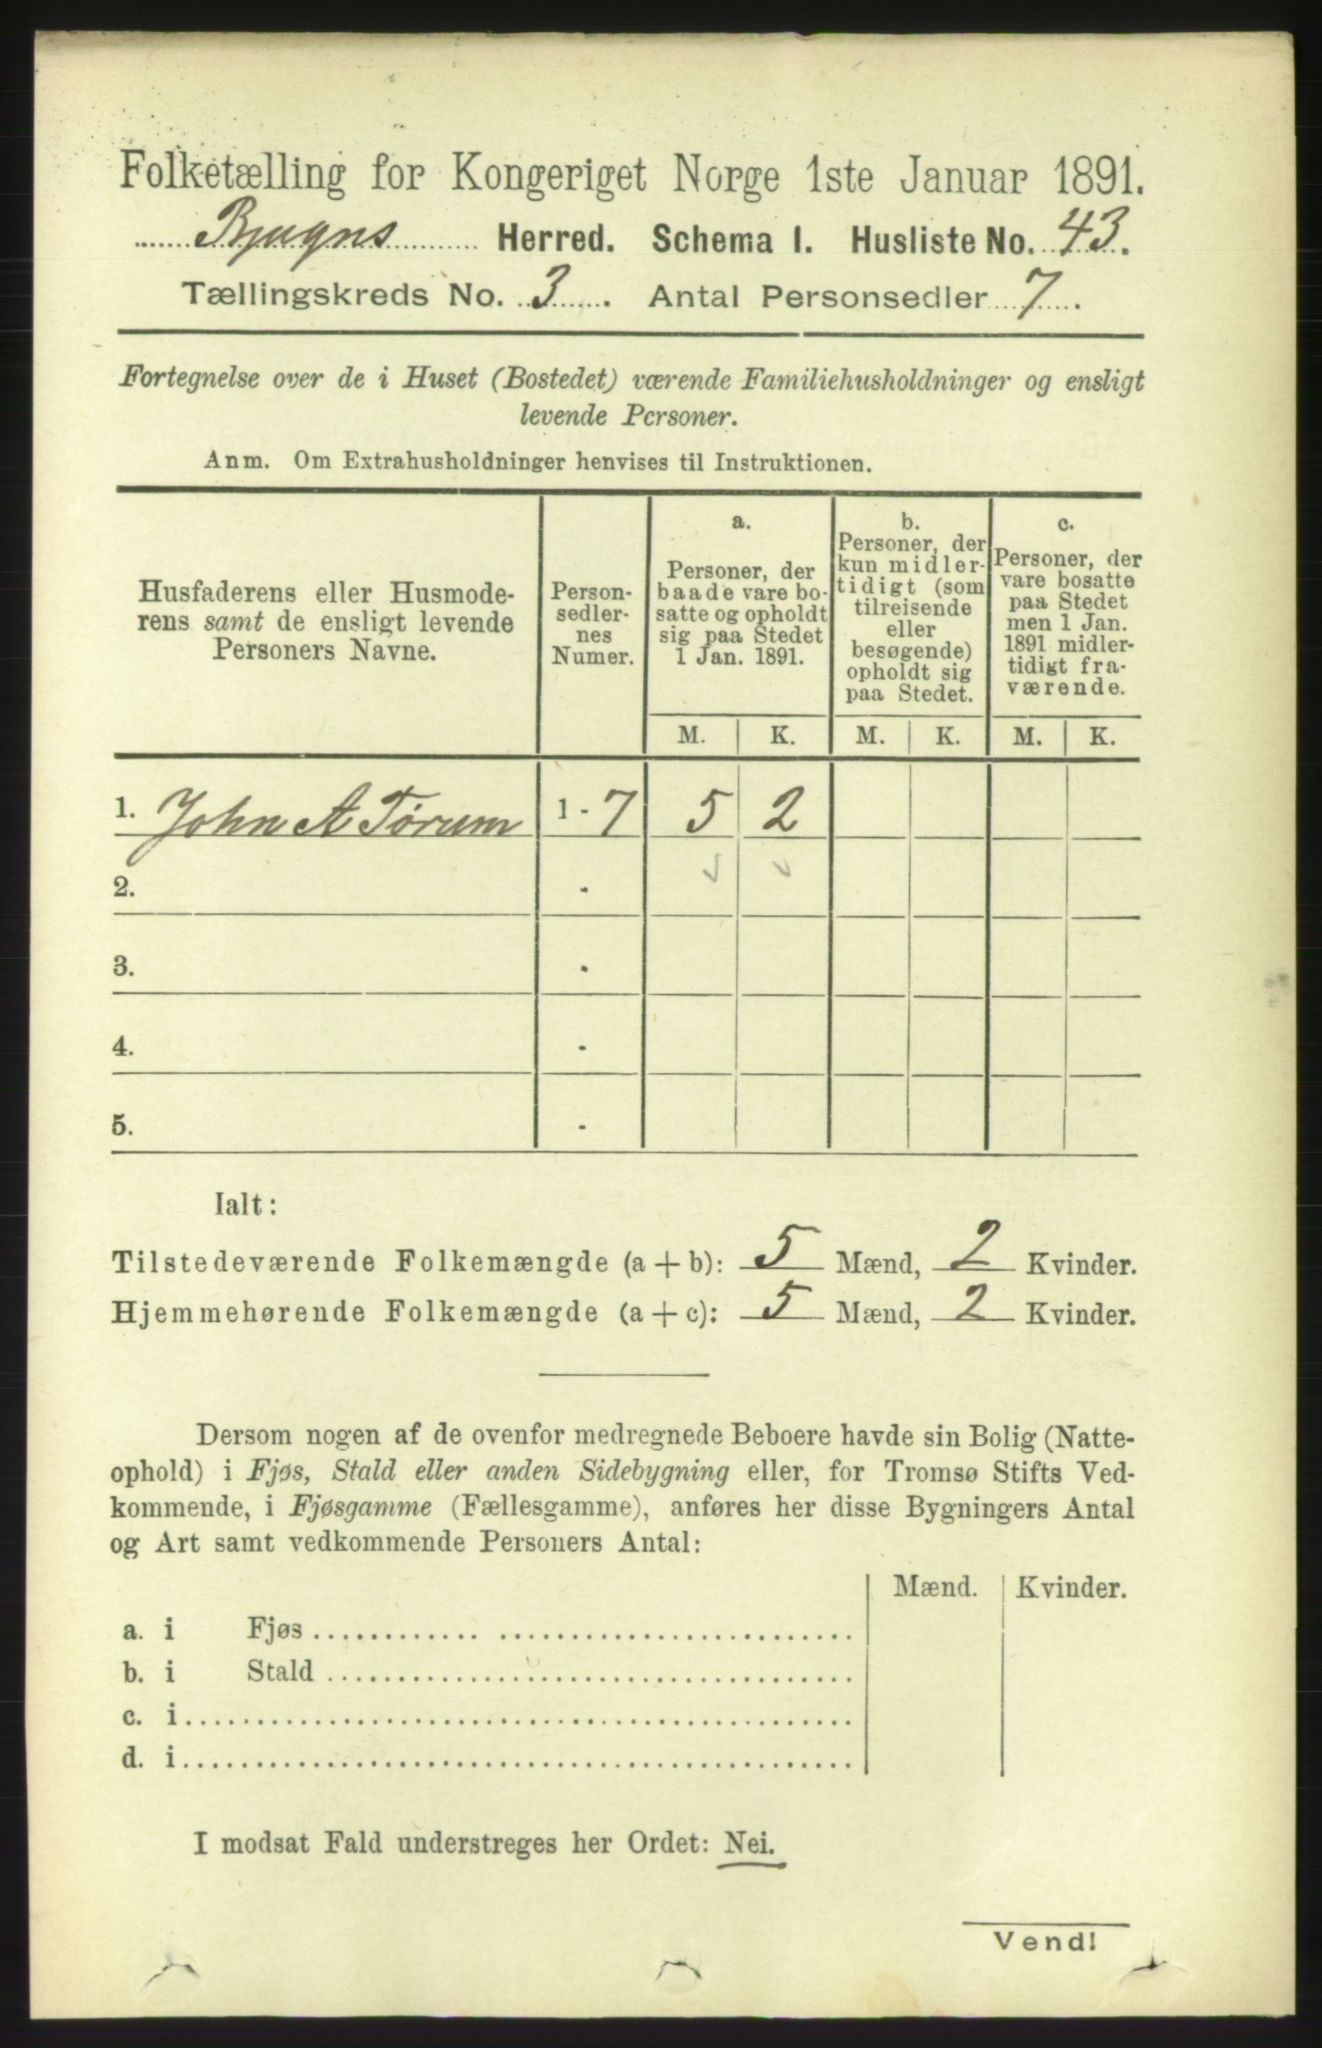 Folketælling for Kongeriget Norge 1ste Januar 1891.
Bjugns Herred. Schema I. Husliste No. 43.
Tællingskreds No. 3. Antal Personsedler 7.
Fortegnelse over de i Huset (Bostedet) værende Familiehusholdninger og ensligt
levende Personer.
Anm. Om Extrahusholdninger henvises til Instruktionen.
Husfaderens eller Husmode-
rens samt de ensligt levende
Personers Navne.
Person-
sedler-
nes
Numer.
a.
Personer, der
baade vare bo-
satte og opholdt
sig paa Stedet
1 Jan. 1891.
b.
Personer, der
kun midler-
tidigt (som
tilreisende
eller
besøgende)
opholdt sig
paa Stedet.
c.
Personer, der
vare bosatte
paa Stedet
men 1 Jan.
1891 midler-
tidigt fra-
værende.
M. K. M. K. M. K.
1. John A Tørum 1 - 7 5 2
2. -
3. -
4. -
5. -
Ialt:
Tilstedeværende Folkemængde (a + b): 5 Mænd, 2 Kvinder.
Hjemmehørende Folkemængde (a + c): 5 Mænd, 2 Kvinder.
Dersom nogen af de ovenfor medregnede Beboere havde sin Bolig (Natte-
ophold) i Fjøs, Stald eller anden Sidebygning eller, for Tromsø Stifts Ved-
kommende, i Fjøsgamme (Fællesgamme), anføres her disse Bygningers Antal
og Art samt vedkommende Personers Antal:
Mænd. Kvinder.
a. i Fjøs
b. i Stald
c. i
d. i
I modsat Fald understreges her Ordet: Nei.
Vend!